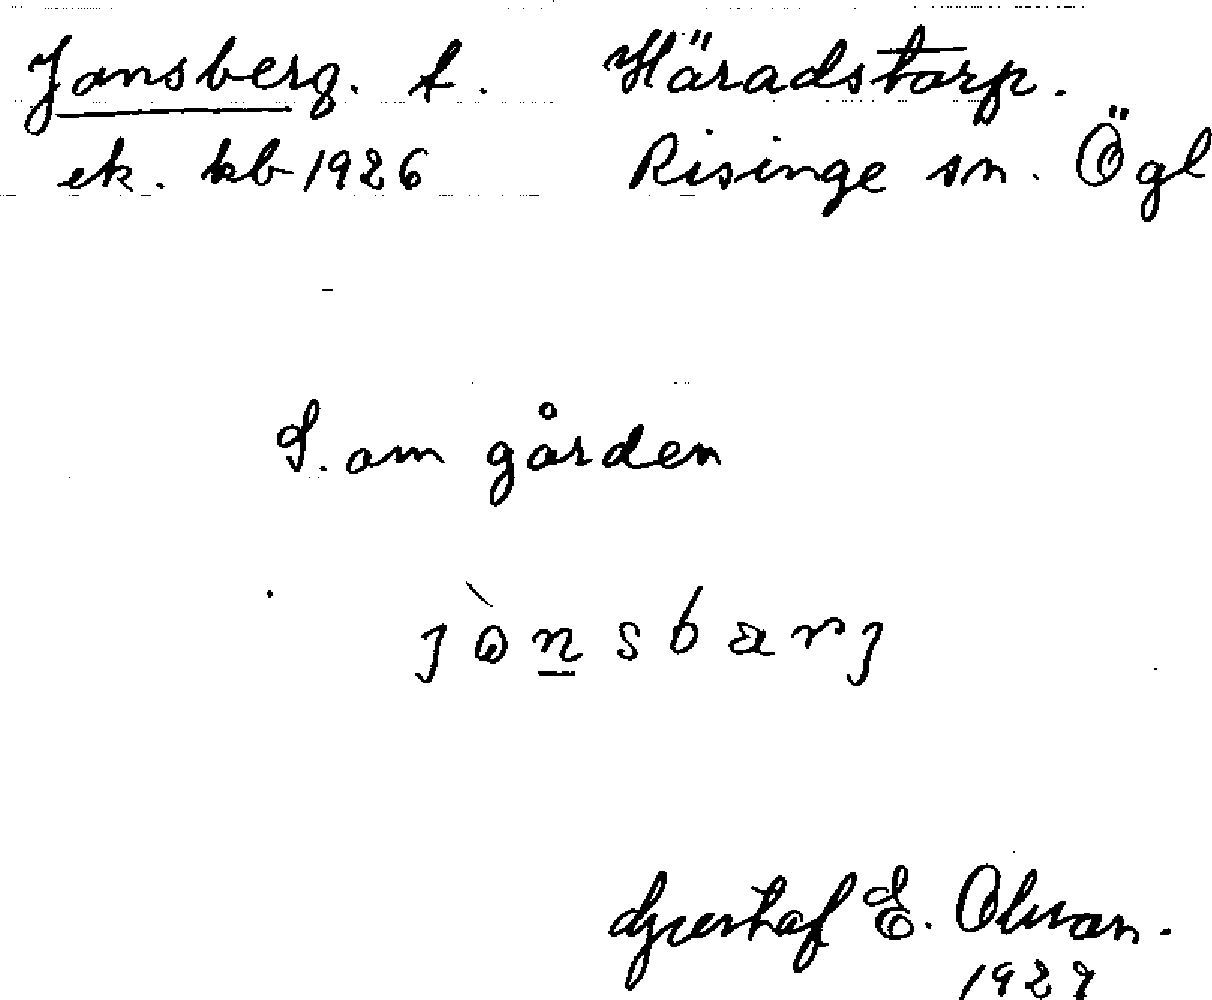 Jonsberg. t. Häradstorp.
ek. kb 1926 Risinge sn. Ögl
S. om gården
Gustaf E. Olsson.
1927